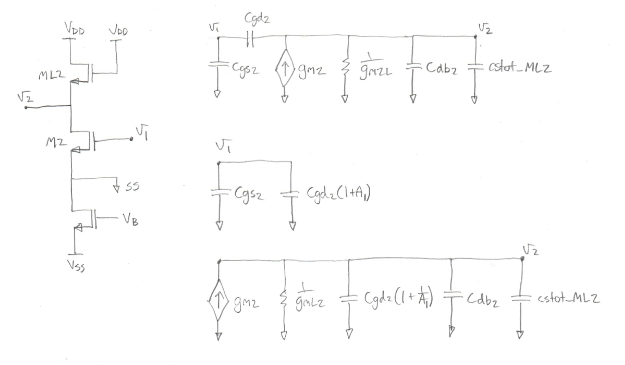 VDD VDD
ML2
V2
M2
V1
SS
VB
VSS
V1 Cgd2 V2
Cgs2 gm2 1/gm2L Cdb2 cstot_ML2
V1
Cgs2 Cgd2(1+A1)
V2
gm2 1/gmL2 Cgd2(1+1/A1) Cdb2 cstot_ML2